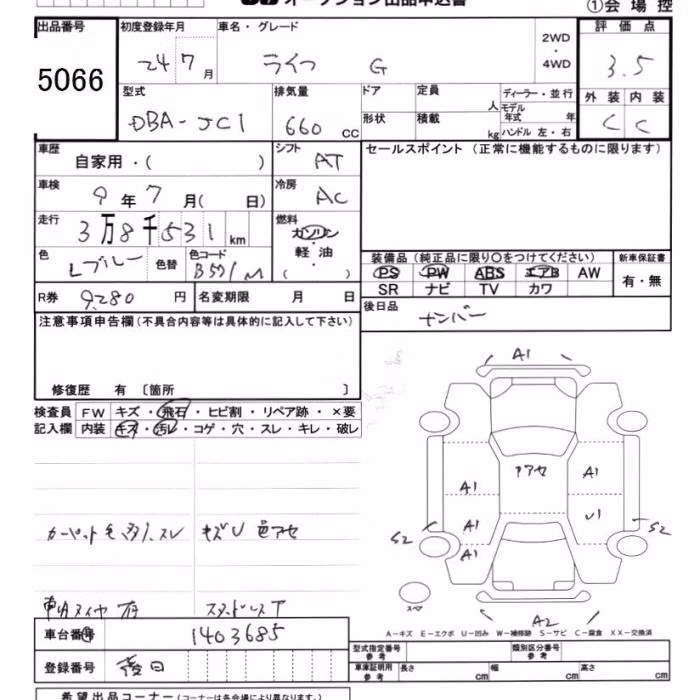 オークション出品申込書
①会場控
出品番号 初度登録年月 車名・グレード 2WD・4WD 評価点
5066 24 7月 ライフ G 3.5
型式 排気量 ドア 定員 人 ディーラー・並行 外装 内装
DBA-JC1 660cc 形状 積載 kg モデル年式 年 ハンドル 左・右 C C
車歴 自家用・( ) シフト AT セールスポイント (正常に機能するものに限ります)
車検 9年7月( 日) 冷房 AC
走行 3万8千531km 燃料 ガソリン
軽油
( )
色 Lブルー 色替 色コード B551M
装備品 (純正品に限り○をつけてください) 新車保証書
PS PW ABS エアB AW 有・無
SR ナビ TV カワ
R券 9280円 名変期限 月 日 後日品 ナンバー
注意事項申告欄 (不具合内容等は具体的に記入して下さい)
修復歴 有 〔箇所 〕
検査員 FW キズ・飛石・ヒビ割・リペア跡・×要
記入欄 内装 キズ・汚レ・コゲ・穴・スレ・キレ・破レ
A1
アアセ A1
A1
A1 U1
S2 A1 S2
スペア
A2
スレ キズU 色アセ
A-キズ E-エクボ U-凹み W-補修跡 S-サビ C-腐食 XX-交換済
車台番号 1403685
型式指定番号 参考 類別区分番号 参考
車庫証明用 参考 長さ cm 幅 cm 高さ cm
登録番号 後日
希望出品コーナー (コーナーは各会場により異なります。)